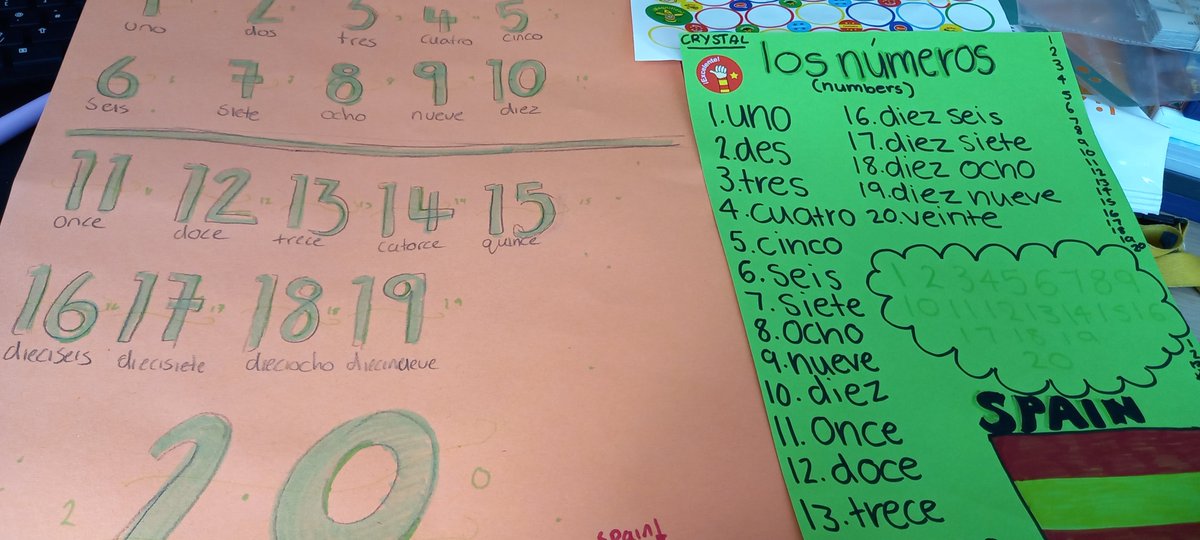 1 2 3 4 5
uno dos tres cuatro cinco
6 7 8 9 10
seis siete ocho nueve diez
11 12 13 14 15
once doce trece catorce quince
16 17 18 19
dieciseis diecisiete dieciocho diecinueve
20
2 0
spain!
CRYSTAL
¡Excelente!
los números
(numbers)
1.uno
2.des
3.tres
4.cuatro
5.cinco
6.seis
7.siete
8.ocho
9.nueve
10.diez
11.once
12.doce
13.trece
16.diez seis
17.diez siete
18.diez ocho
19.diez nueve
20.veinte
1 2 3 4 5 6 7 8 9
10 11 12 13 14 15 16
17 18 19
20
SPAIN
1
2
3
4
5
6
7
8
9
10
11
12
13
14
15
16
17
18
19
20